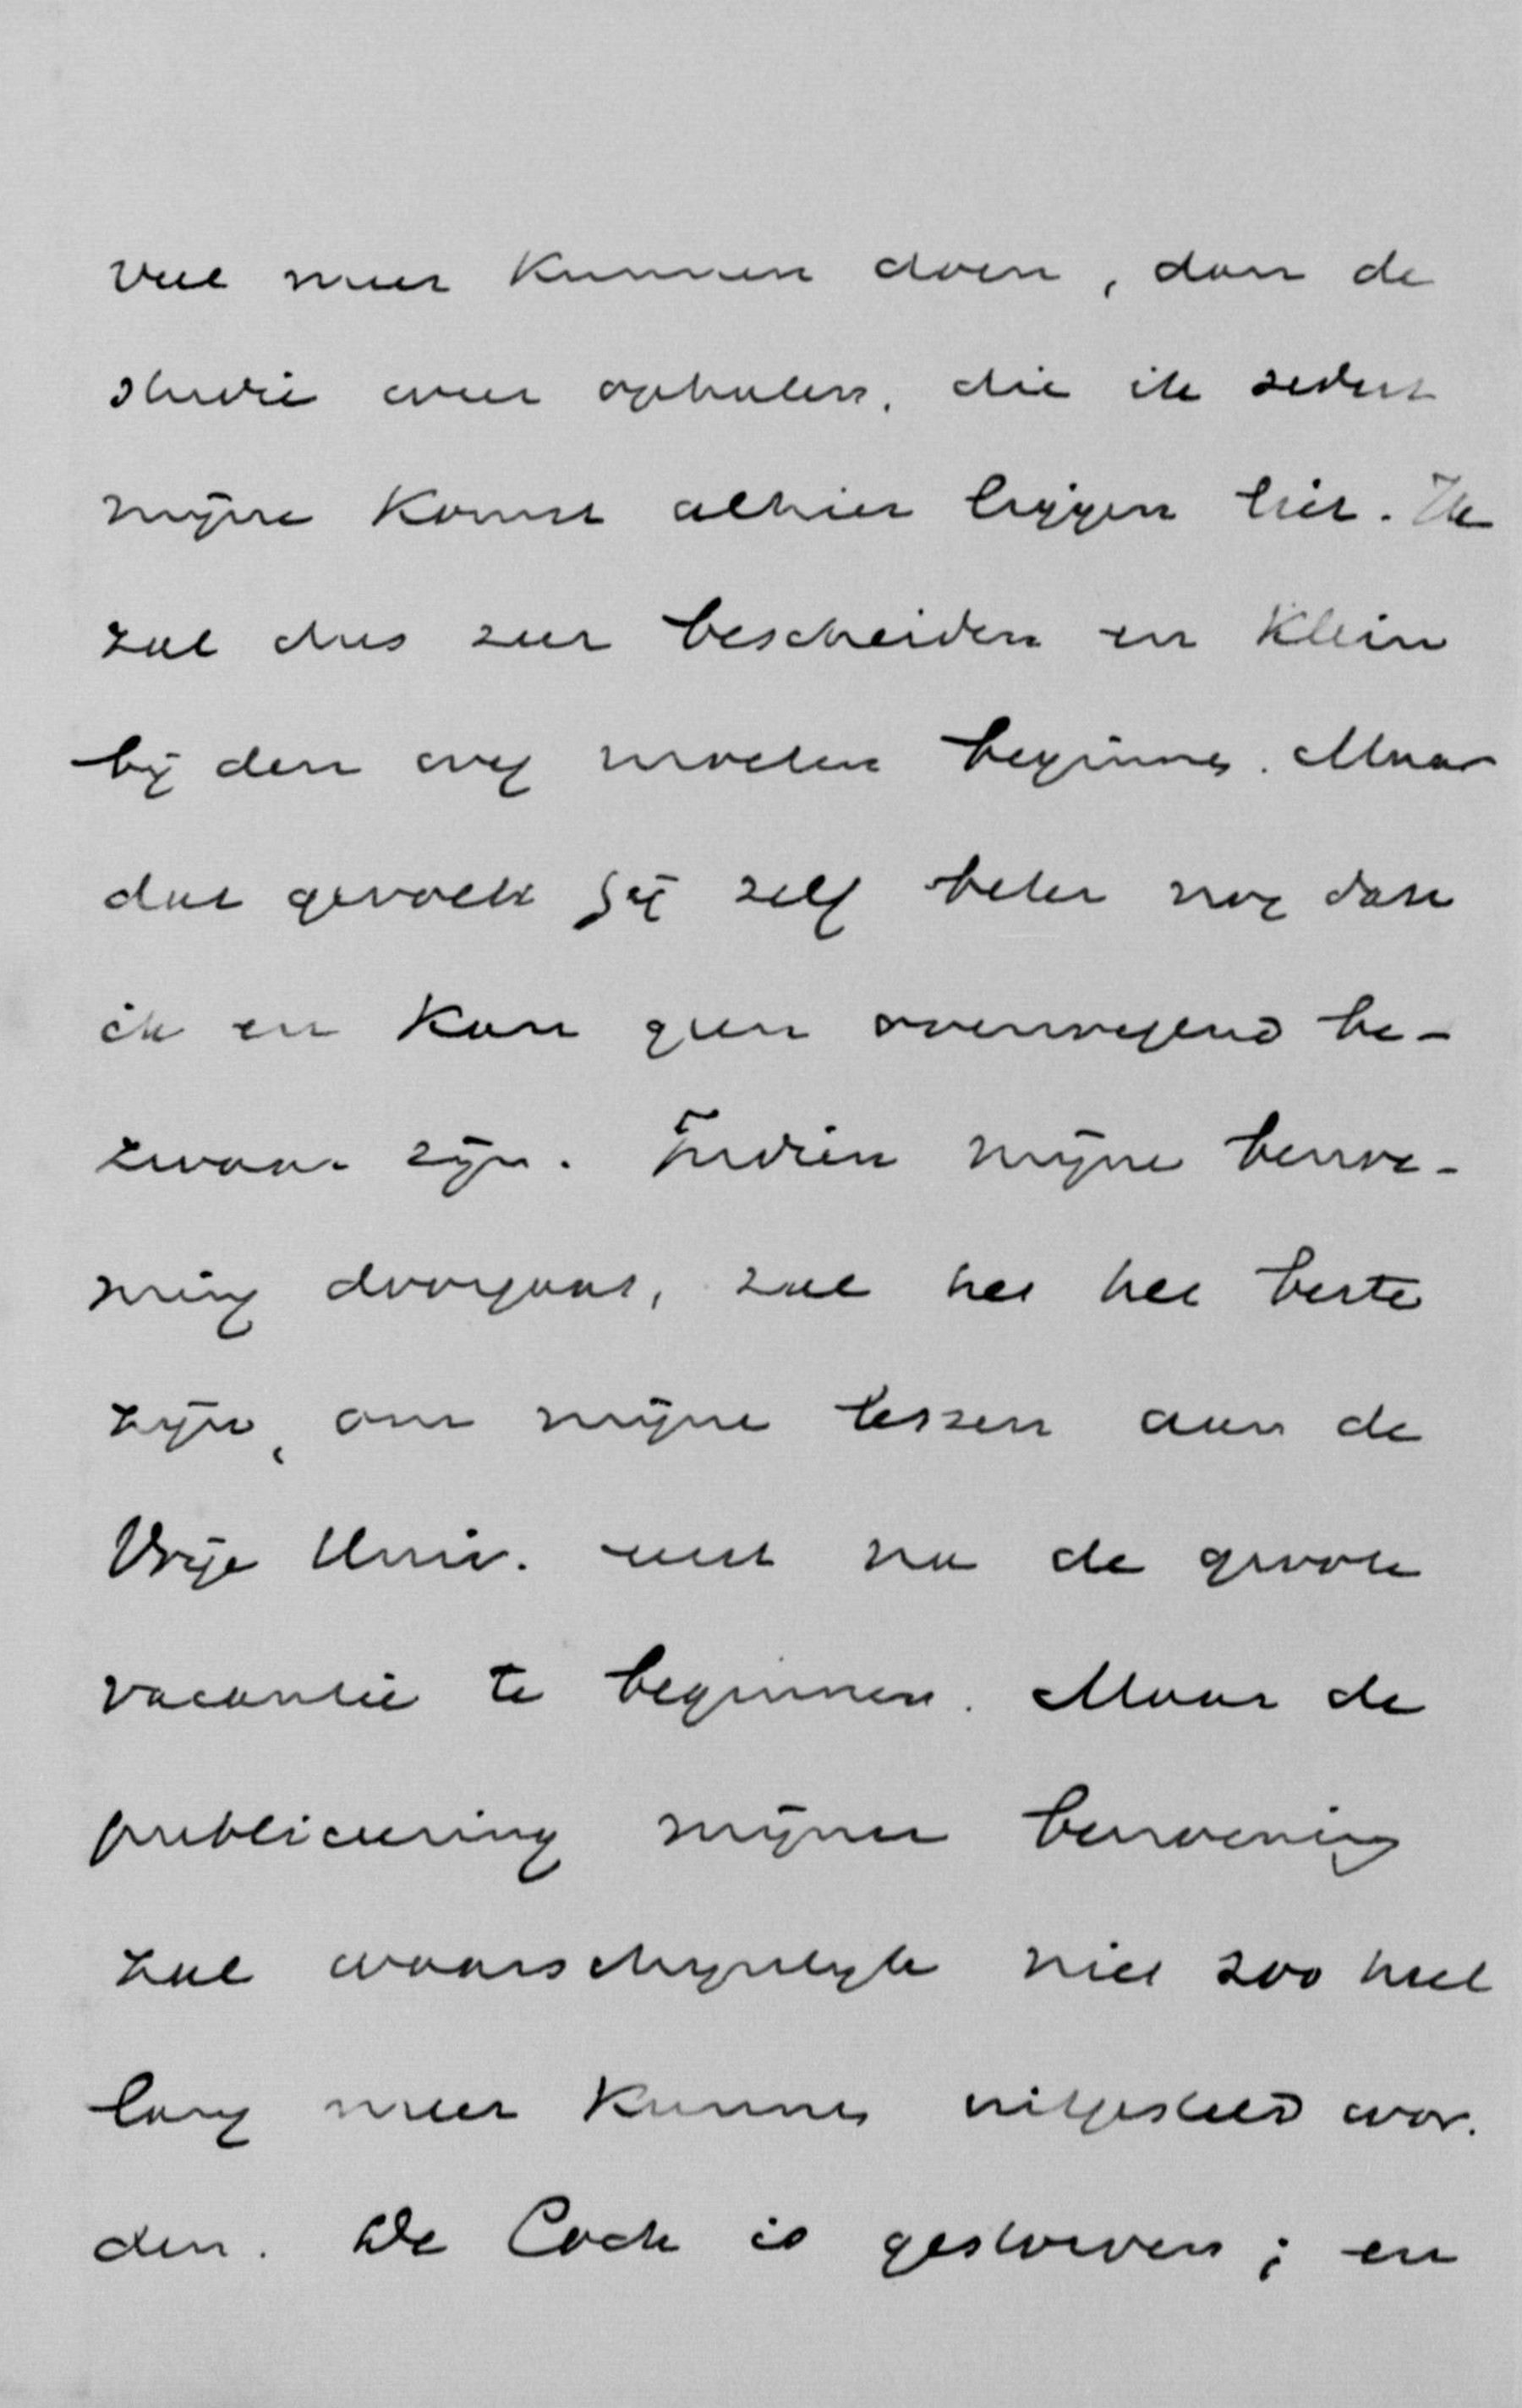 veel meer kunnen doen, dan de
studie weer ophalen, die ik sedert
mijne komst alhier liggen liet. Ik
zal dus zeer bescheiden en klein
bij den weg moeten beginnen. Maar
dat gevoelt gij zelf beter nog dan
ik en kan geen overwegend be-
zwaar zijn. Indien mijne benoe-
ming doorgaat, zal het het beste
zijn, om mijne lessen aan de
Vrije Univ. eerst na de groote
vacantie te beginnen. Maar de
publiceering mijner benoeming
zal waarschijnlijk niet zoo heel
lang meer kunnen uitgesteld wor-
den. De Cock is gestorven; en